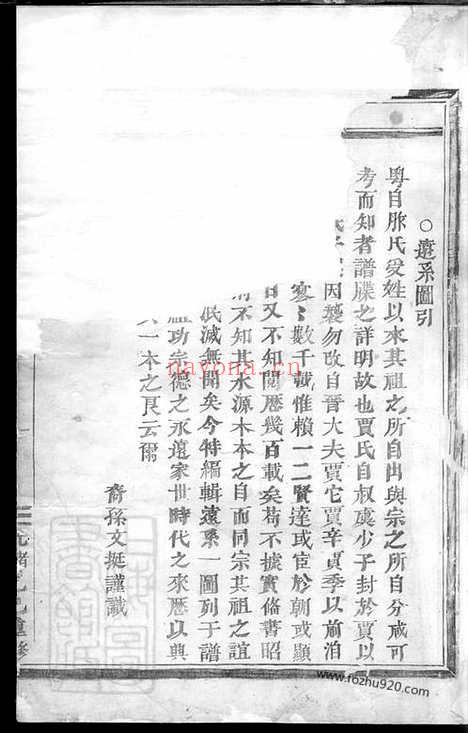 ○遠系圖引
粵自賬氏受姓以來其祖之所自出與宗之所自分咸可
考而知者譜牒之詳明故也賈氏自叔虞少子封於賈以
因襲勿改自晉大夫賈它賈辛賈季以前泊
寥寥數千載惟賴一二賢達或宦於朝或顯
又不知閱歷幾百載矣苟不據實脩書昭
不知其水源木本之自而同宗其祖之誼
泯滅無聞矣今特編輯遠系一圖列于譜
祖功宗德之永遠家世時代之來歷以與
一本之良云爾
裔孫文挺謹識
nayona.cn
www.fozhu920.com